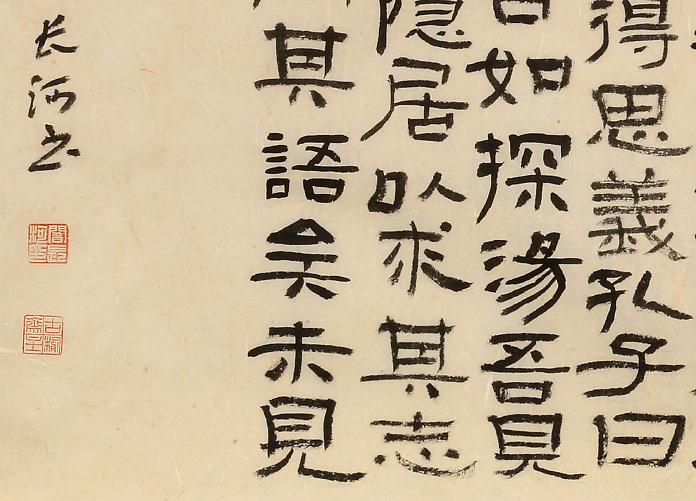 得思義孔子曰
如探湯吾見
隱居以求其志
其語矣未見
长河书